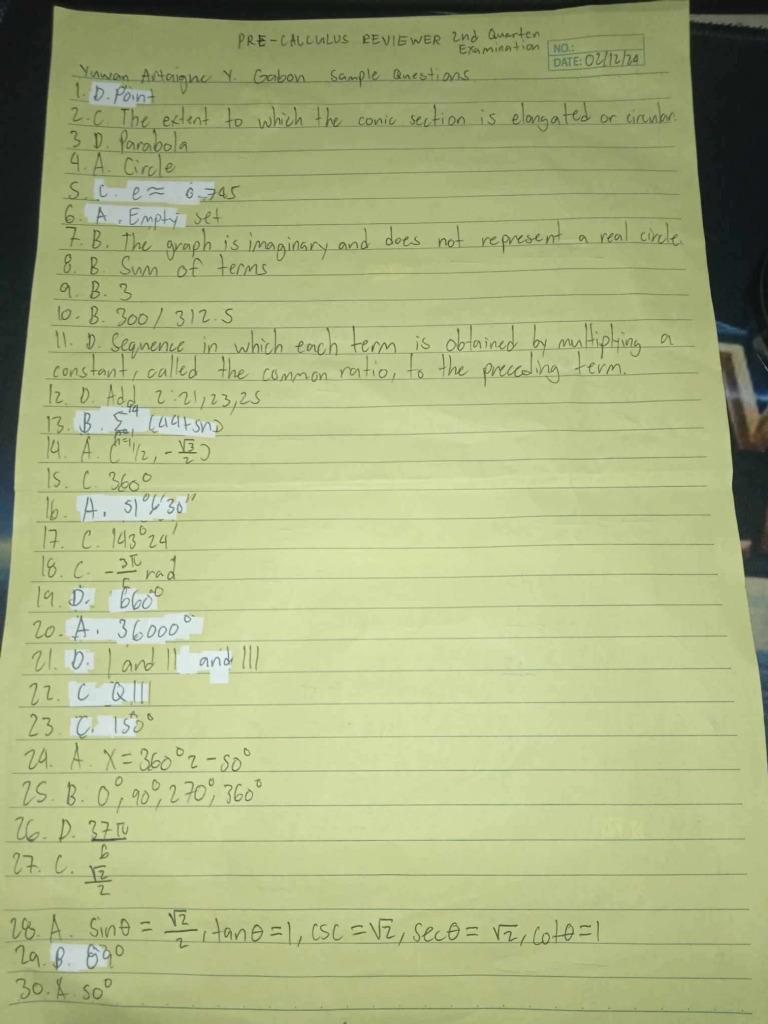 PRE-CALCULUS REVIEWER 2nd Quarter
Examination
NO.:
DATE: 02/12/24
Yuwan Artaigne Y. Gabon Sample Questions
1. D. Point
2. C. The extent to which the conic section is elongated or circular.
3 D. Parabola
4. A. Circle
5. C. e ≈ 0.745
6. A. Empty set
7. B. The graph is imaginary and does not represent a real circle.
8. B. Sum of terms
9. B. 3
10. B. 300 / 312.5
11. D. Sequence in which each term is obtained by multiplying a
constant, called the common ratio, to the preceding term.
12. D. Add 2: 21, 23, 25
13. B. Σ n=1 (44+5n)
14. A. (-1/2, -√3/2)
15. C. 360°
16. A. 51° 30"
17. C. 143° 24'
18. C. - rad
19. D. 660°
20. A. 36000°
21. D. I and II and III
22. C QIII
23. C. 150°
24. A. X = 360° 2 - 50°
25. B. 0°, 90°, 270°, 360°
26. D. 37π/6
27. C. √2/2
28. A. Sinθ = √2/2, tanθ = 1, CSC = √2, Secθ = √2, Cotθ = 1
29. B. 69°
30. A. 50°